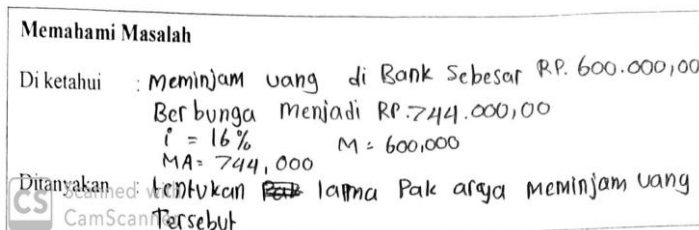 Memahami Masalah
Di ketahui : Meminjam uang di Bank Sebesar RP. 600.000,00
Berbunga Menjadi RP.744.000,00
i = 16% M = 600,000
MA = 744,000
Ditanyakan : tentukan lama Pak arya Meminjam uang
Tersebut
CS Scanned with
CamScanner